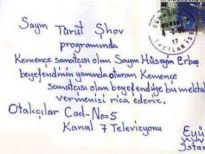 Sayın Tarüt Şhov
programında
Kemence sanatcısı olan Sayın Hüseyin Erbaş
beyefendinin yanında oturan Kemence
sanatcısı olan beyefendiye bu mektubu
vermenizi rica ederiz.
Otakçılar Cad. No=5
Kanal 7 Televizyonu